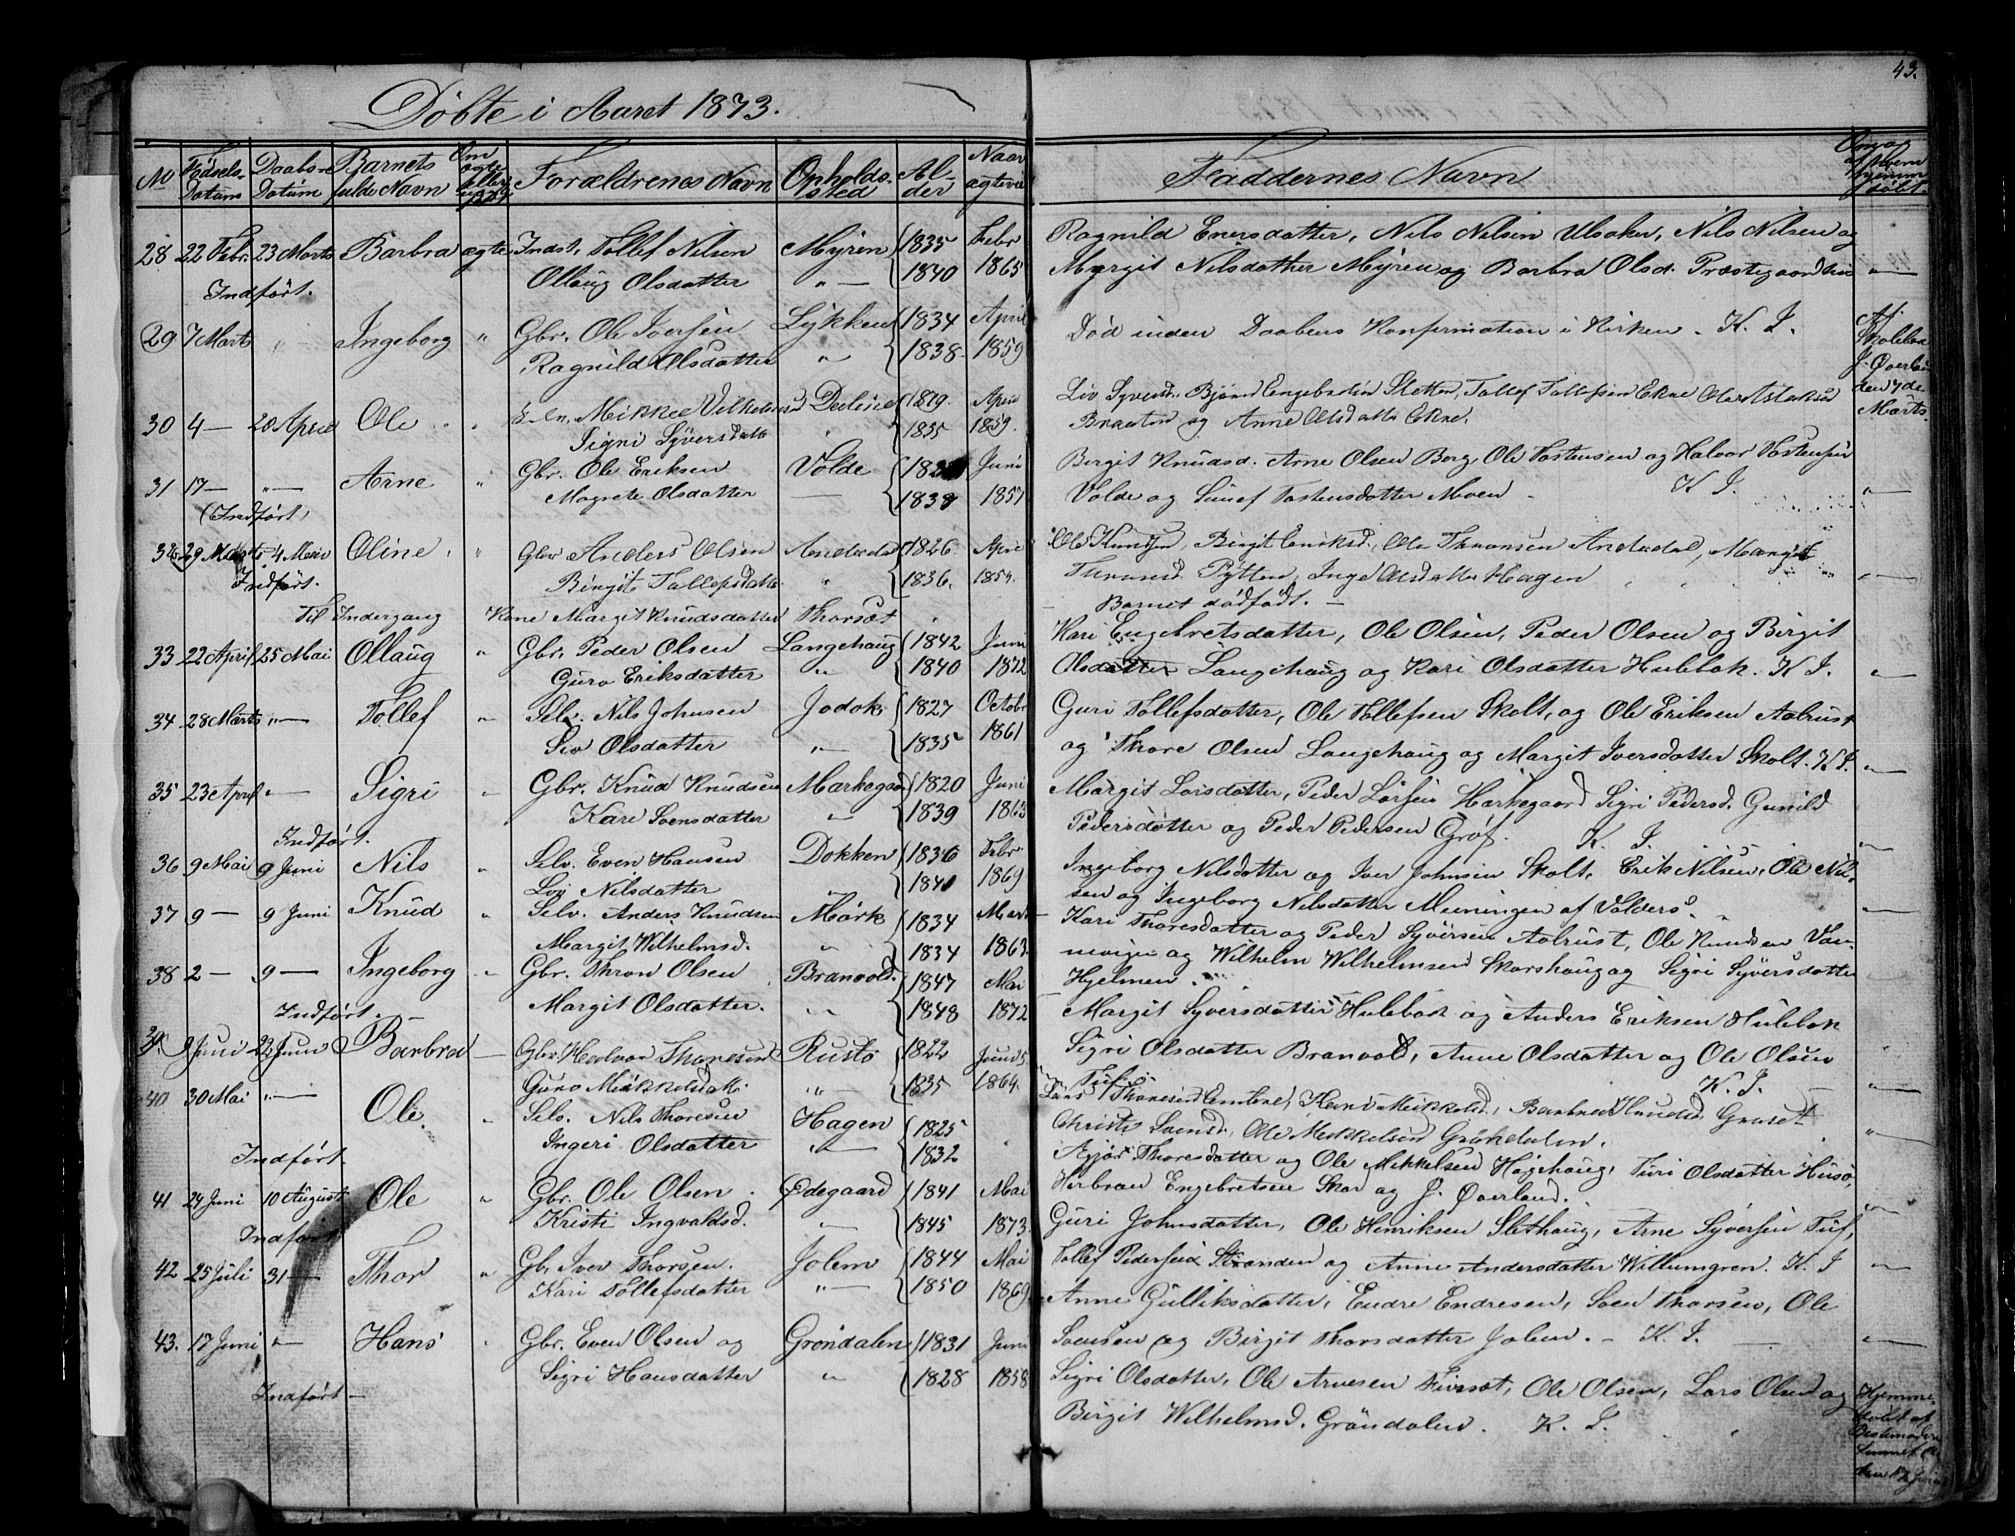 43.
Döbte i Aaret 1873.
No Födsels- Datum Daabs- Datum Barnets fulde Navn Om ægte eller uægte Forældrenes Navn Opholds- Sted Al- der Naar ægteviet
Faddernes Navn
28 22 Febr. 23 Marts Barbra ægte Indst. Tollef Nilsen Myren 1835 Febr
Ollaug Olsdatter " — 1840 1865
Indført.
Ragnild Enersdatter, Nils Nilsen Ulsaker, Nils Nilsen og
Margit Nilsdatter Myren og Barbra Olsd. Præstegaard
29 7 Marts " Ingeborg " Gbr. Ole Iversen Lykken 1834 April
Ragnild Olsdatter " 1838 1859
Död inden Daabens Konfirmation i Kirken. K. I.
Af Skoleh. J. Överland den 7de Marts
30 4 — 20 April Ole " Mikkel Vilhelmsen 1829. April
Sigri Syversdatter " 1835 1859.
Liv Syversd. Björn Engebretsen Sletten, Tollef Tollefsen Ekre
Braaten og Anne Olsdatter Ekre.
31 17 — " — Arne " Gbr. Ole Eriksen Volde Juni
Magrete Olsdatter — 1838 1857
(Indført)
Birgit Knudsd. Arne Olsen Berg, Ole Tostensen og Halvor Tostensen
Volde og Sunef Tostensdatter Moen K I.
32 29 Marts 4 Mai Oline " Gbr Anders Olsen 1826. April
Birgit Tollefsdatter " 1836.
Indført.
Ole Knudsen, Birgit Eriksd., Ole Thronsen Anderdal, Margit
Thronsd. Pytten, Inge Olsdatter Hagen
Til Indergang Kone Margit Knudsdatter Thorset
Barnet dödfödt. —
33 22 April 25 Mai Ollaug " Gbr. Peder Olsen Langehaug 1842 Juni
Guro Eriksdatter " 1840 1872
Kari Engebretsdatter, Ole Olsen, Peder Olsen og Birgit
Olsdatter Langehaug og Kari Olsdatter Hulbak. K I.
34 28 Marts " — Tollef " Selv. Nils Johnsen Jodok 1827 Octobr
Liv Olsdatter " — 1835 1861
Guri Tollefsdatter, Ole Tollefsen Skolt, og Ole Eriksen Aalrust
og Thore Olsen Langehaug og Margit Iversdatter Skolt. K I.
35 23 April " — Sigri " Gbr. Knud Knudsen Markegaard 1820 Juni
Kari Svensdatter " 1839 1863
Indført.
Margit Larsdatter, Peder Larsen Markegaard Sigri Pedersd. Gunild
Pedersdatter og Peder Pedersen Gröf. K. I.
36 9 Mai 9 Juni Nils " Selv. Even Hansen Dokken 1836 Febr
Liv Nilsdatter " 1841 1869
Ingeborg Nilsdatter og Iver Johnsen Skolt, Erik Nilsen, Ole Nil-
sen og Ingeborg Nilsdatter Meiningen af Valders.
37 9 — 9 Juni Knud " Selv. Anders Knudsen Mörk 1834 Marts
Margit Wilhelmsd. " 1834 1863
Kari Thoresdatter og Peder Syversen Aalrust, Ole Knudsen Van-
nevigen og Wilhelm Wilhelmsen Skarshaug og Sigri Syversdatter
Hjelmen.
38 2 — 9 — Ingeborg " Gbr. Thron Olsen Branvold 1847 Mai
Margit Olsdatter. " 1848 1872
Indført. —
Margit Syversdatter Hulebak og Anders Eriksen Hulebak
Sigri Olsdatter Branvold, Anne Olsdatter og Ole Olsen
Tuf. K. I.
39. 9 Juni 22 Juni Barbra — Gbr Halvor Thoresen Rusto 1822 Juni
Guro Mikkelsdatt. " — 1835 1864.
Lars Thoresen Emtene, Mikkelsd., Barbra Knudsd. Graset
Christi Svensd., Ole Mikkelsen Gröndalen.
40 30 Mai " — Ole " Selv. Nils Thoresen Hagen 1825
Ingeri Olsdatter " — 1832
Indført.
Thoresdatter og Ole Mikkelsen Högehaug, Turi Olsdatter Huso,
Herbran Engebretsen Skar og J. Överland.
41 24 Juni 10 August Ole " Gbr. Ole Olsen Ödegaard 1841 Mai
Kristi Ingvaldsd. " 1845 1873
Indført
Guri Johnsdatter, Ole Henriksen Slethaug, Arne Syversen Tuf,
Tollef Pedersen Stranden og Anne Andersdatter Willumgren. K. I
42 25 Juli 31 — Thor " Gbr. Iver Thorsen. Jolem 1844 Mai
Kari Tollefsdatter " — 1850 1869
Anne Gulliksdatter, Endre Endresen, Sven Thorsen, Ole
Svensen og Birgit Thorsdatter Jolem. — K. I.
43. 17 Juni " — Hans Gbr. Even Olsen og Gröndalen 1831 Juni
Sigri Hansdatter " 1828 1858
Indført —
Sigri Olsdatter, Ole Arnesen Tursæt, Ole Olsen, Lars Olsen og
Birgit Wilhelmsd. Gröndalen. K. I.
Hjemme
döbt af
Bestemoderen
den 17 Juni